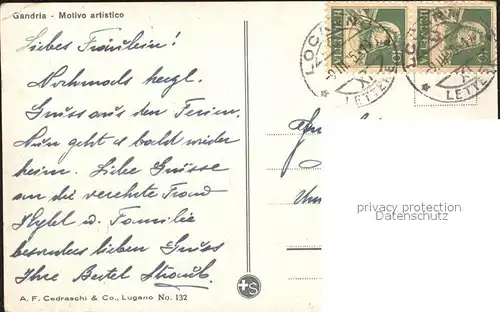 Gandria - Motivo artistico
Liebes Fräulein!
Nochmals herzl.
Gruss aus den Ferien.
Nun geht's bald wieder
heim. Liebe Grüsse
an die verehrte Frau
Hytel u. Familie
besonders lieben Gruss
Ihre Bertel Straub.
A. F. Cedraschi & Co., Lugano No. 132
S
HELVETIA
HELVETIA
10
LOCARNO
LETTERE
LETTERE
privacy protection
Datenschutz